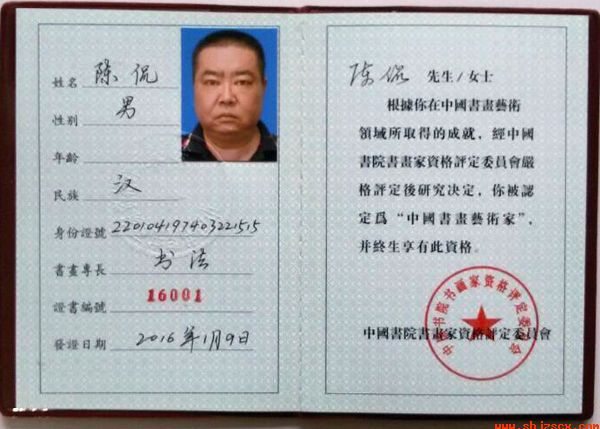 姓名 陈侃
性别 男
年齡
民族 汉
身份證號 220104197403221515
書畫專長 书法
證書編號 16001
發證日期 2016年1月9日
陈侃 先生/女士
根據你在中國書畫藝術
領域所取得的成就，經中國
書院書畫家資格評定委員會嚴
格評定後研究决定，你被認
定爲“中國書畫藝術家”，
并終生享有此資格。
中國書院書畫家資格評定委員會
中国书院书画家资格评定委员会
www.shjzscx.com